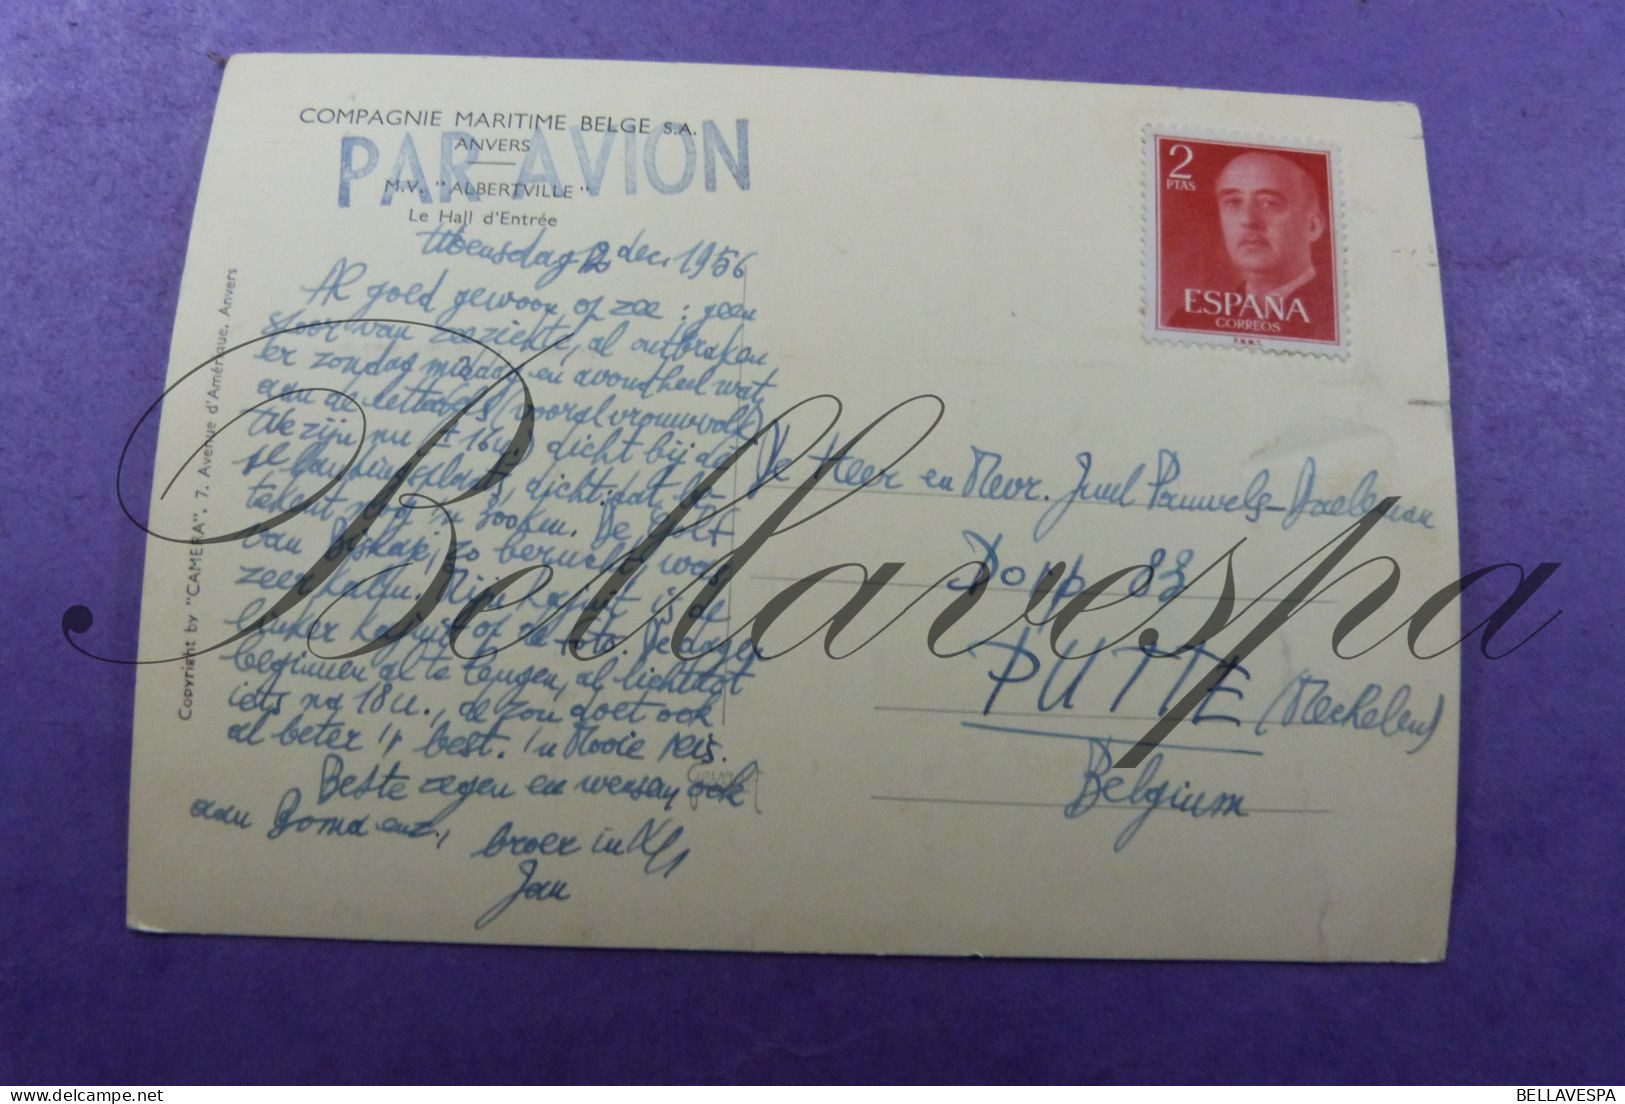 COMPAGNIE MARITIME BELGE S.A.
ANVERS
PAR AVION
M.V. "ALBERTVILLE"
Le Hall d'Entrée
Copyright by "CAMERA", 7, Avenue d'Amérique, Anvers
Woensdag 12 dec. 1956
Al goed gewoon op zee : geen
van zeeziekte, al ontbraken
er zondag middag en avond heel wat
aan de (vooral vrouwvolk)
We zijn nu ± 16u, dicht bij de
dicht: dat be-
tekent nog in zooken. De Golf
van Biskaje, zo berucht, was
zeer kalm. Mijn kajuit is de
linker kajuit op de foto. De dagen
beginnen al te lengen, al lichtdag
iets na 18 u., de zon doet ook
al beter 't best. 'n Mooie reis.
Beste zegen en wensen ook
aan Boma enz.,
broer in Xt
Jan
2
PTAS
ESPAÑA
CORREOS
F.N.M.T.
De Heer en Mevr. Juul Pauwels-Daeleman
Dorp 83
PUTTE (Mechelen)
Belgium
Gevaert
Bellavespa
BELLAVESPA